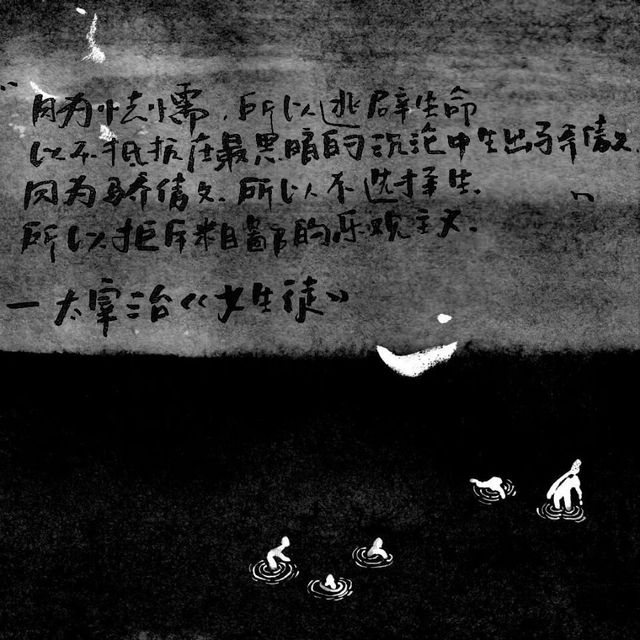 “因为怯懦，所以逃避生命
以不抵抗在最黑暗的沉沦中生出骄傲.
因为骄傲.所以不选择生.
所以拒斥粗鄙的乐观主义.”
—太宰治《女生徒》